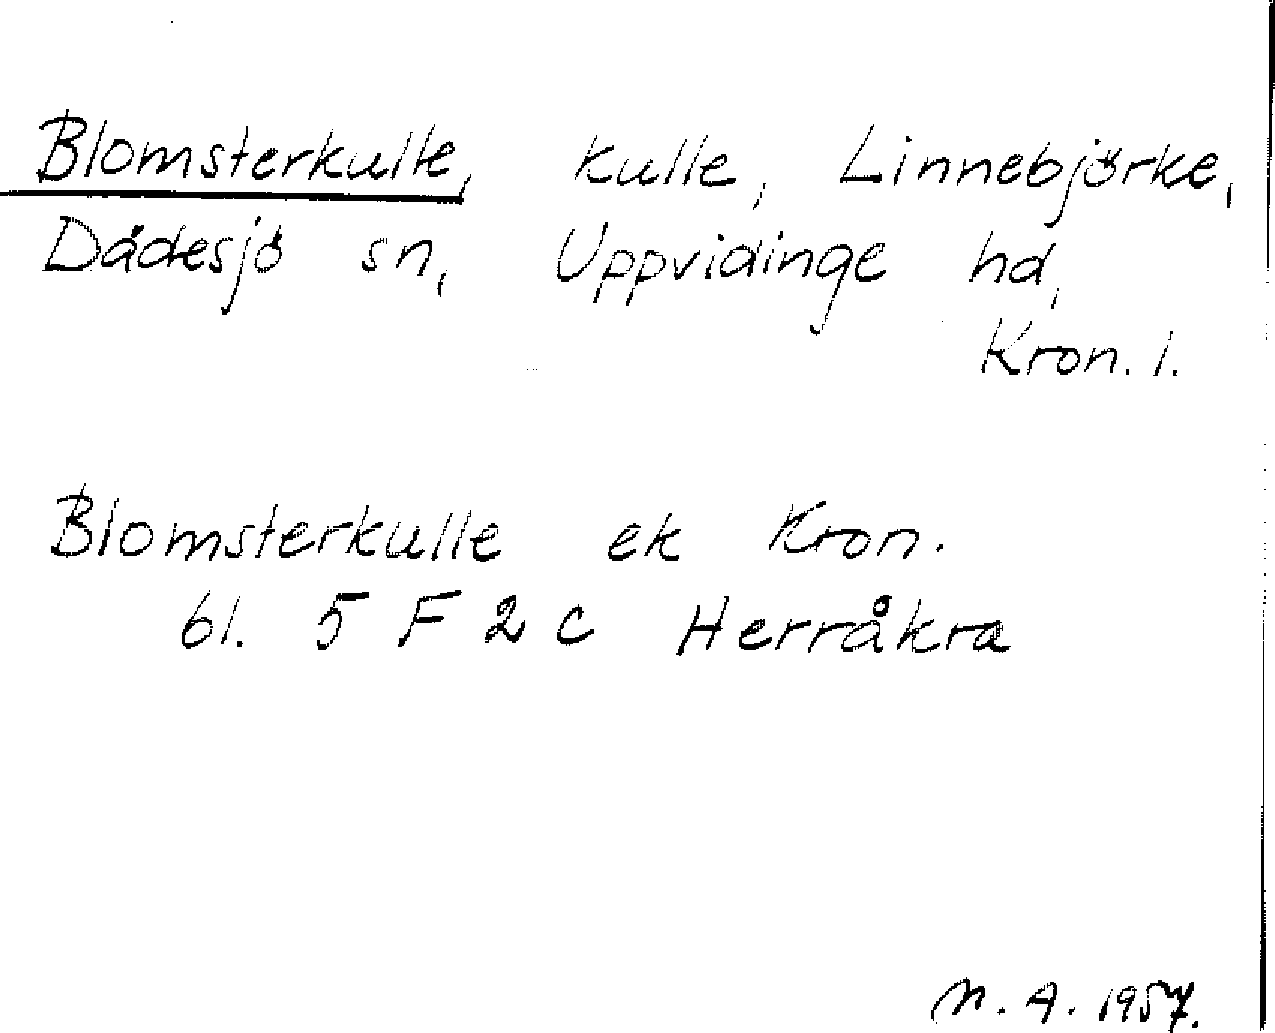 Blomsterkulle, kulle, Linnebjörke,
Dädesjö sn, Uppvidinge hd,
Kron. l.
Blomsterkulle ek Kron.
bl. 5 F 2 c Herråkra
N. A. 1957.